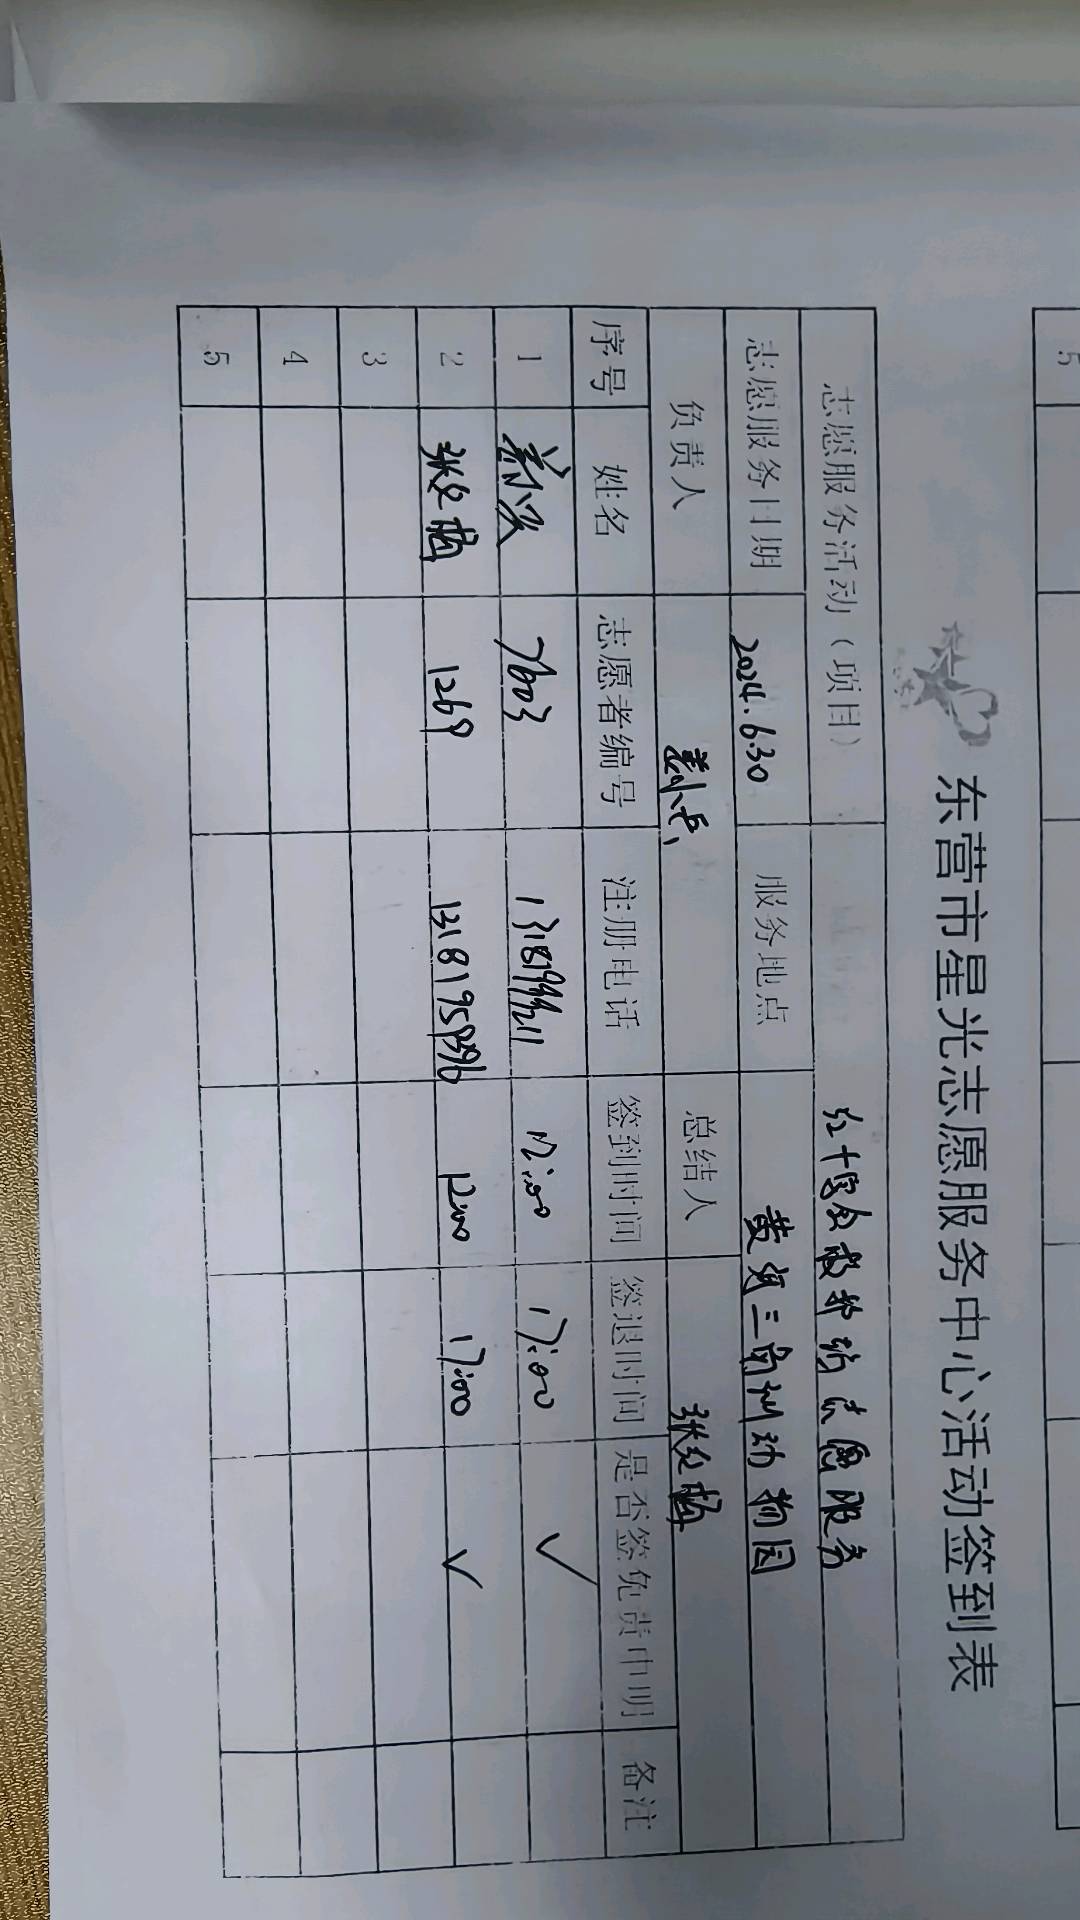 东营市星光志愿服务中心活动签到表
志愿服务活动（项目） 红十字会救护站志愿服务
志愿服务日期 2024.6.30 服务地点 黄河三角洲动物园
负责人 总结人 张红梅
序号 姓名 志愿者编号 注册电话 签到时间 签退时间 是否签免责申明 备注
1 7603 12:00 17:00 ✓
2 张红梅 1269 12:00 17:00 ✓
3
4
5
5